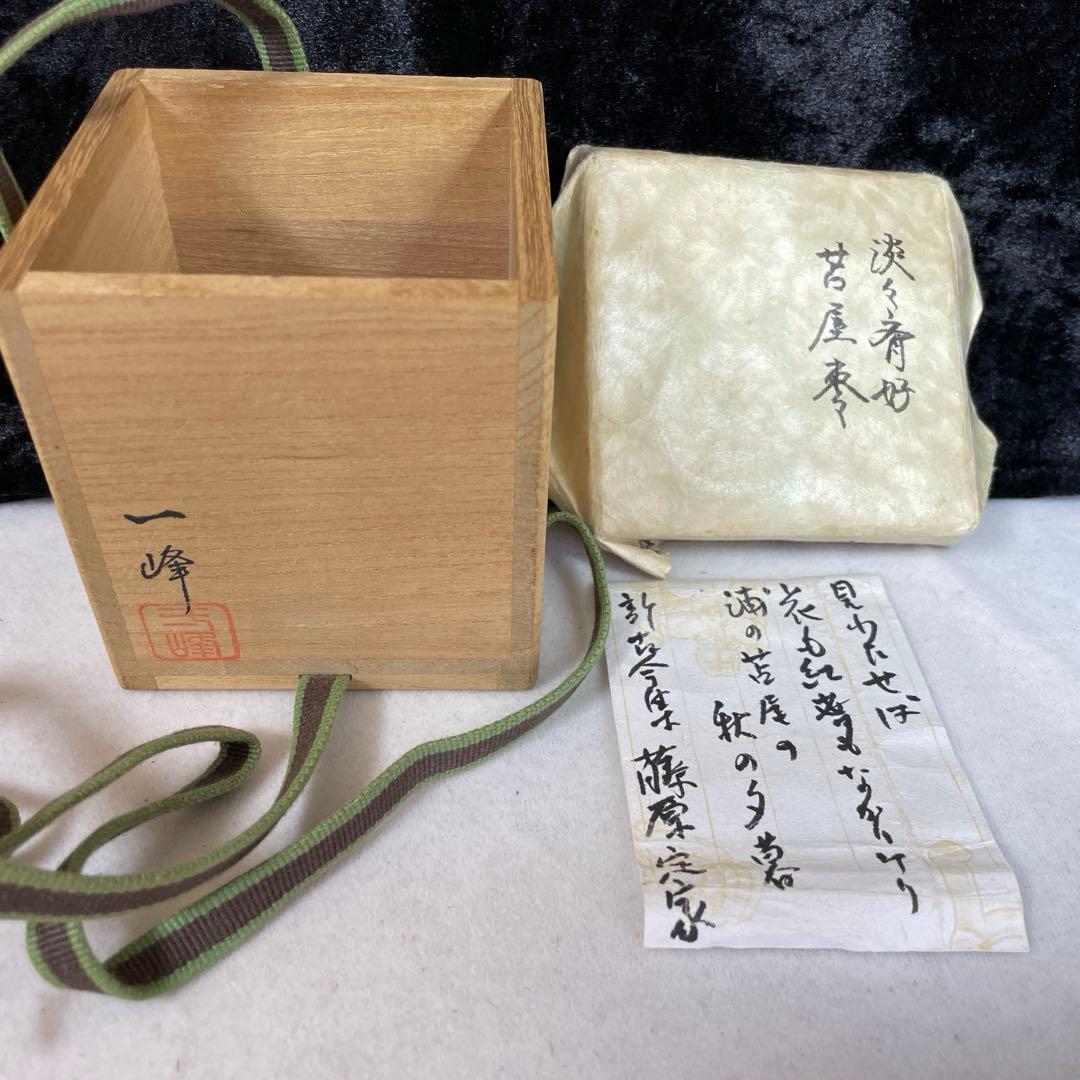 淡々斎好
苫屋棗
一峰
見わたせば
花も紅葉もなかりけり
浦の苫屋の
秋の夕暮
新古今集 藤原定家